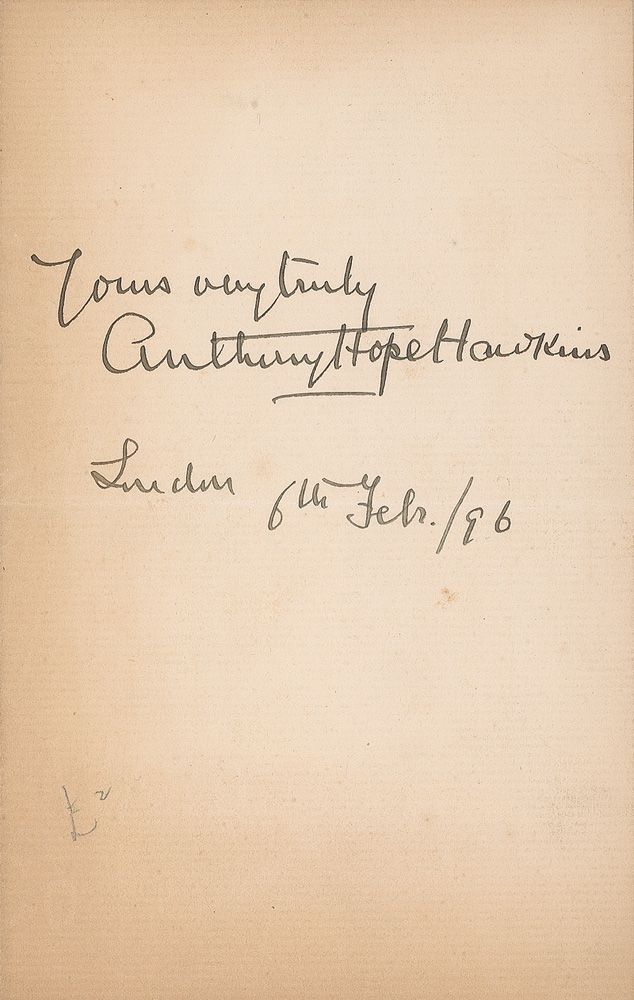 Yours very truly
Anthony Hope Hawkins
London 6th Febr./96